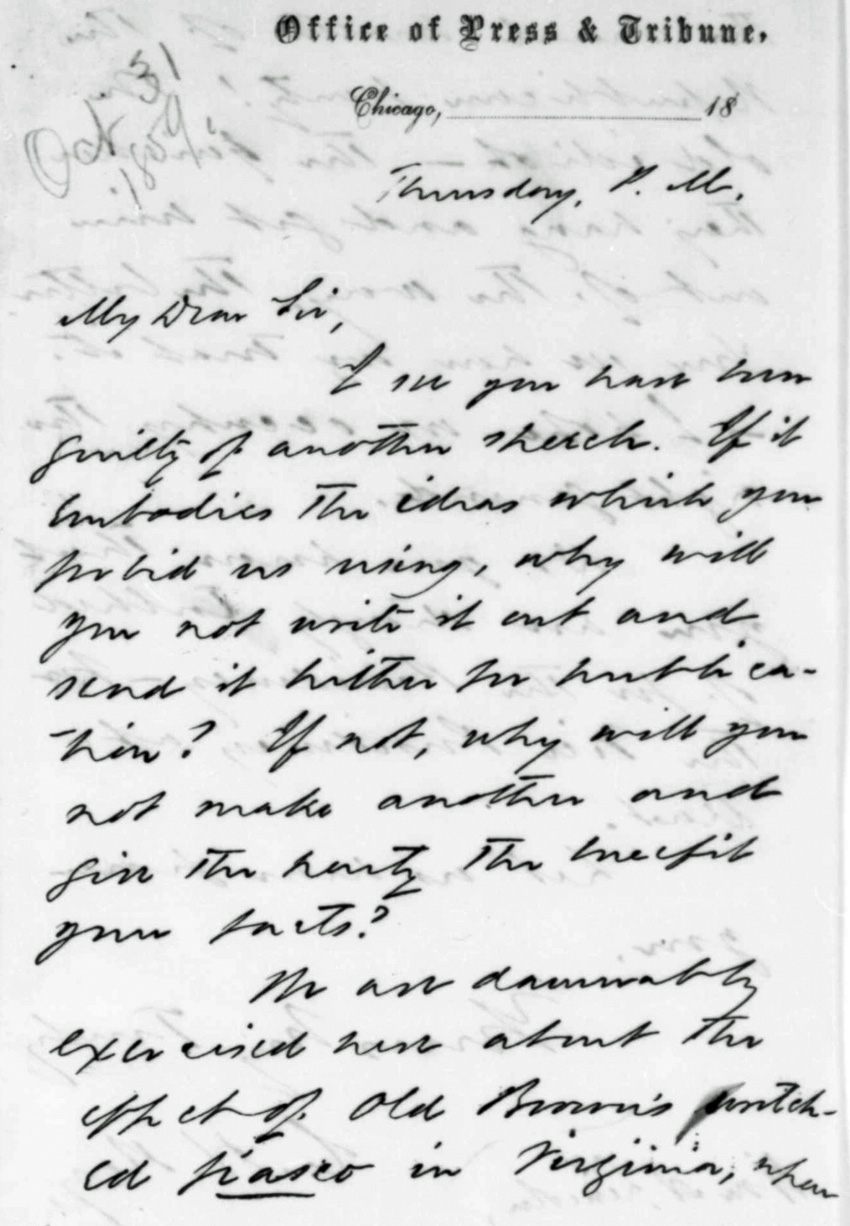 Office of Press & Tribune,
Chicago, 18
Oct 31
/59
Thursday, P. M.
My Dear Sir,
I see you have been
guilty of another speech. If it
embodies the ideas which you
forbid us using, why will
you not write it out and
send it hither for publica-
-tion? If not, why will you
not make another and
give the party the benefit
your facts?
We are damnably
exercised here about the
effect of Old Brown's wretch-
ed fiasco in Virginia, upon